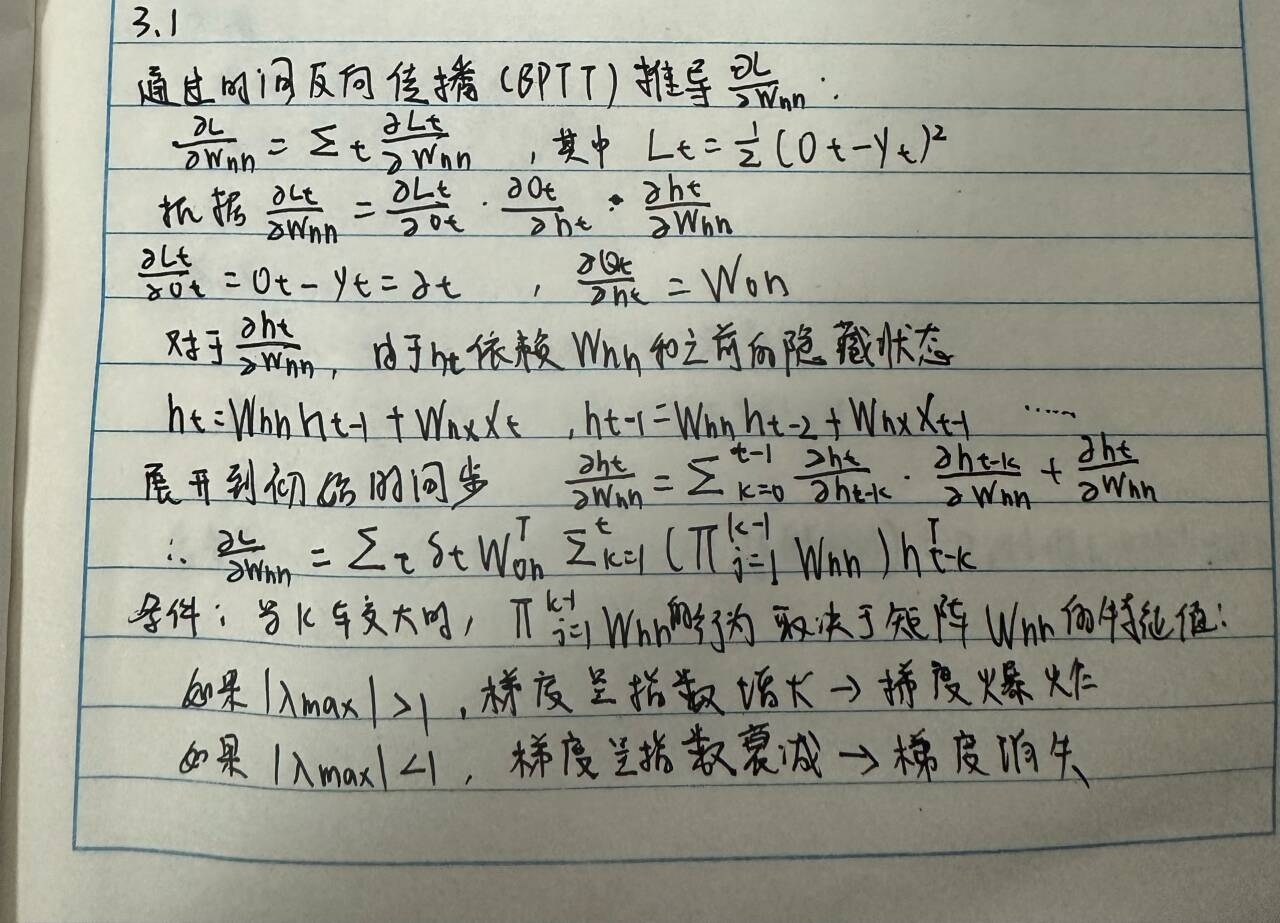 3.1
通过时间反向传播(BPTT)推导 ∂L/∂Wₕₕ:
∂L/∂Wₕₕ = Σt ∂Lt/∂Wₕₕ , 其中 Lt = 1/2 (Ot - yt)²
根据 ∂Lt/∂Wₕₕ = ∂Lt/∂Ot · ∂Ot/∂ht · ∂ht/∂Wₕₕ
∂Lt/∂Ot = Ot - yt = ∂t , ∂Ot/∂ht = Woh
对于 ∂ht/∂Wₕₕ, 由于 ht 依赖 Wₕₕ 和之前的隐藏状态
ht = Wₕₕ ht-1 + Whx Xt , ht-1 = Wₕₕ ht-2 + Whx Xt-1 ……
展开到初始时间步 ∂ht/∂Wₕₕ = Σ_{k=0}^{t-1} ∂ht/∂ht-k · ∂ht-k/∂Wₕₕ + ∂ht/∂Wₕₕ
∴ ∂L/∂Wₕₕ = Σt δt Woh^T Σ_{k=1}^{t} (Π_{j=1}^{k-1} Wₕₕ) h_{t-k}^T
条件: 当 k 较大时, Π_{j=1}^{k-1} Wₕₕ的行为取决于矩阵 Wₕₕ 的特征值:
如果 |λmax| > 1, 梯度呈指数增长 → 梯度爆炸
如果 |λmax| < 1, 梯度呈指数衰减 → 梯度消失